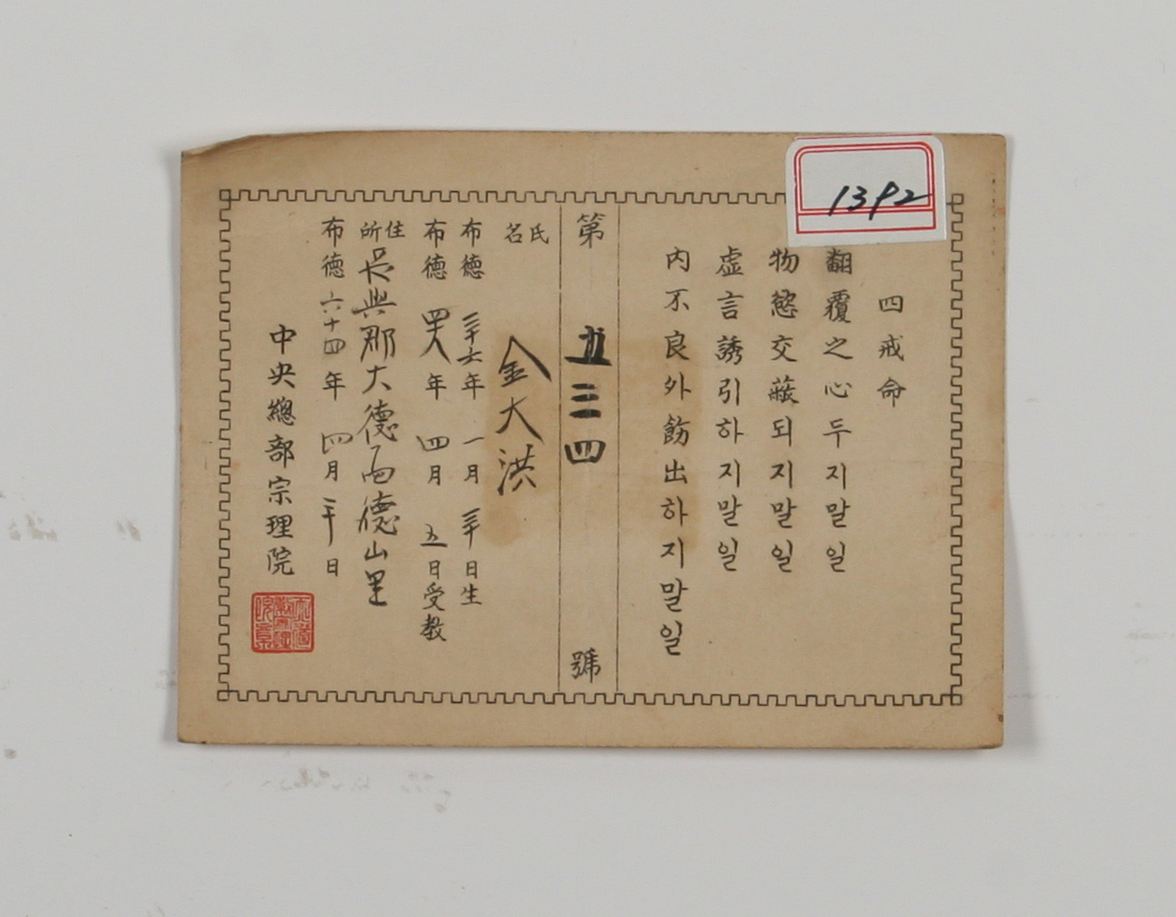 1392
四戒命
翻覆之心두지말일
物慾交蔽되지말일
虛言誘引하지말일
內不良外飭出하지말일
第 五三四 號
氏名 金大洪
布德 三十六年 一月 三十日生
布德 四八年 四月 五日受教
住所 長興郡大德面德山里
布德六十四年 四月 二十日
中央總部宗理院